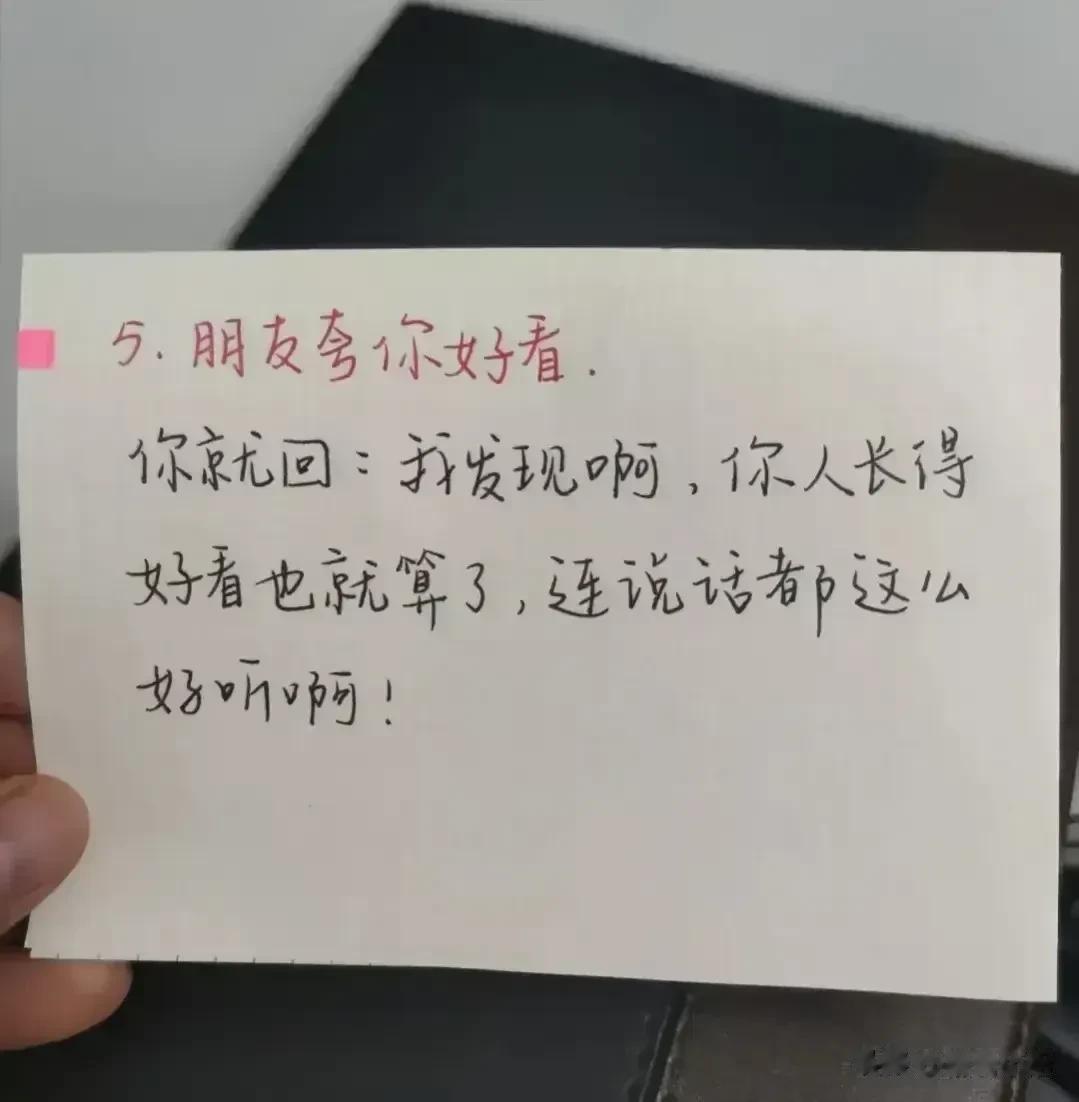 5. 朋友夸你好看.
你就回：我发现啊，你人长得
好看也就算了，连说话都这么
好听啊！